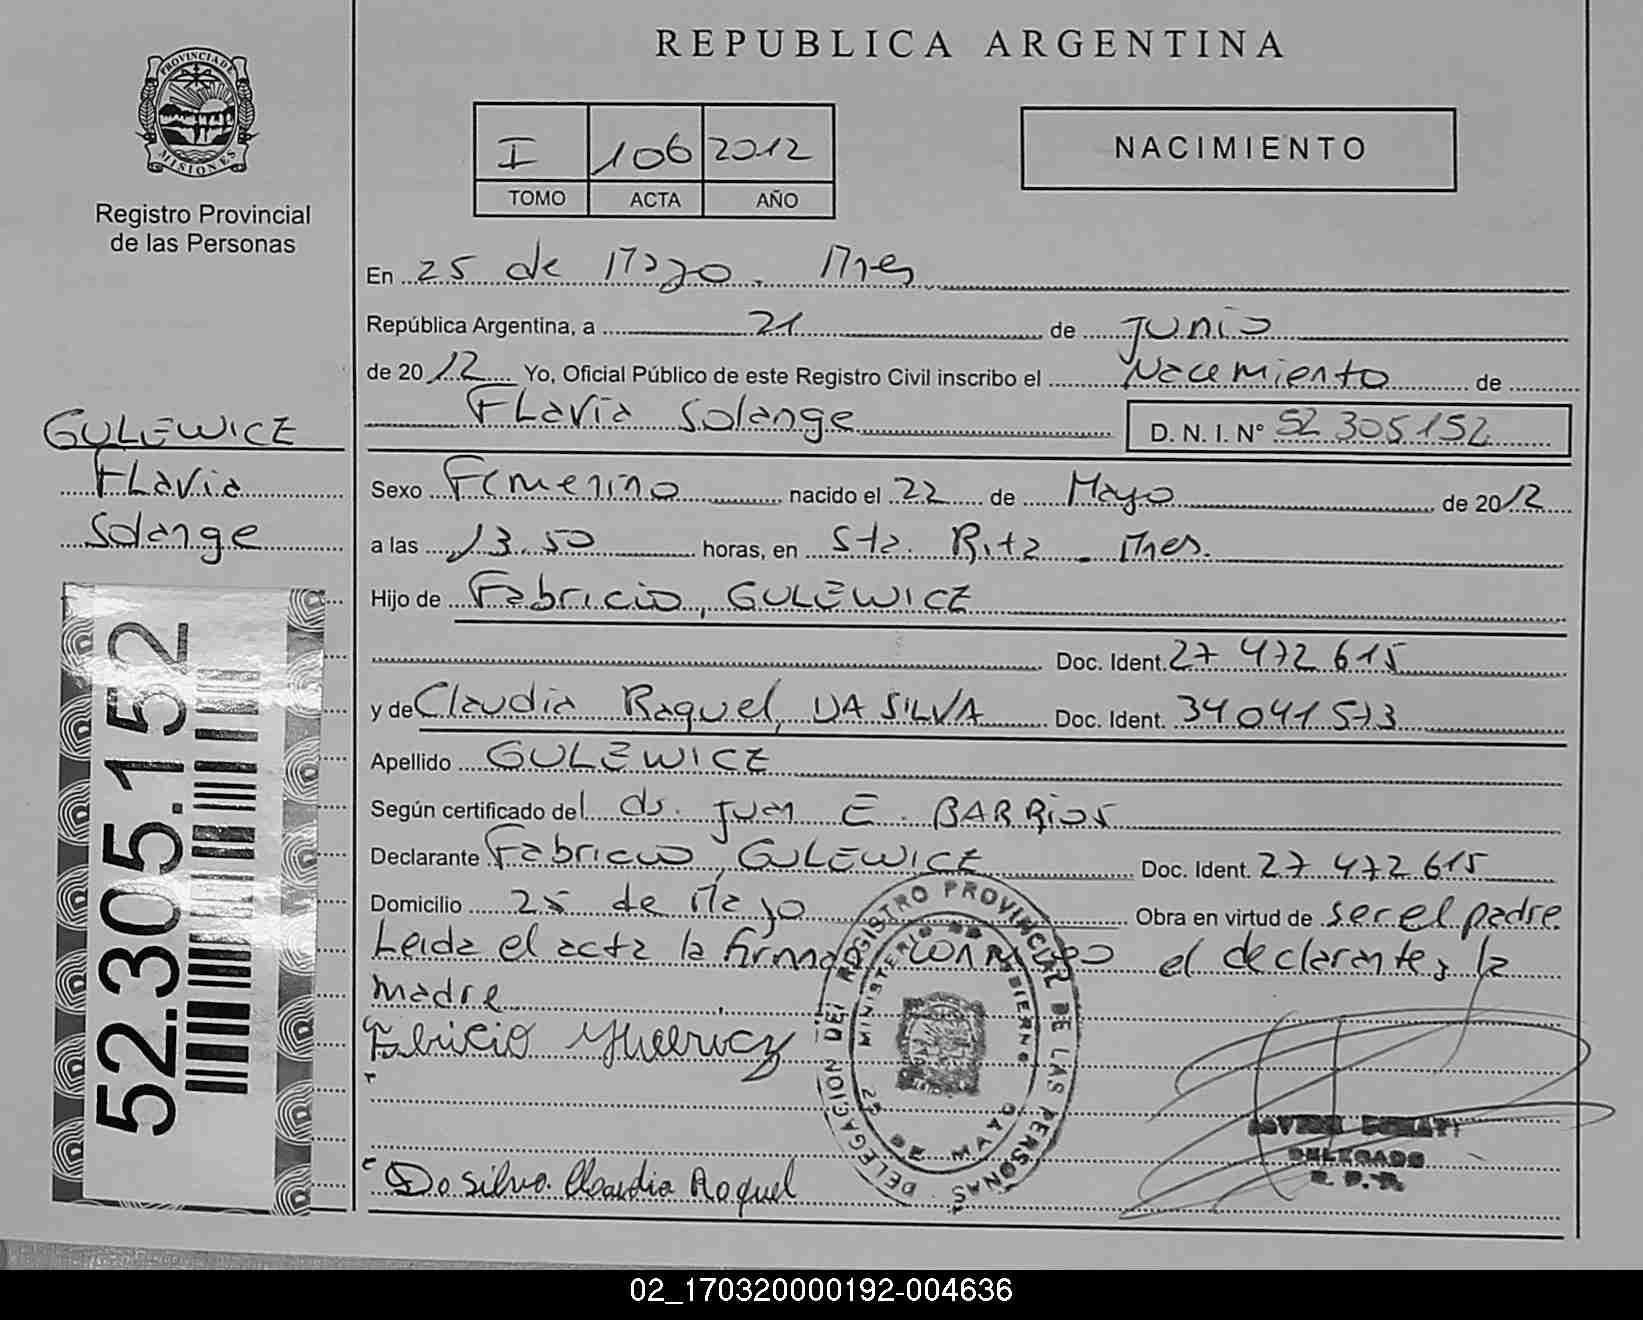 REPUBLICA ARGENTINA
PROVINCIA DE MISIONES
Registro Provincial
de las Personas
I 106 2012
TOMO ACTA AÑO
NACIMIENTO
En 25 de Mayo. Mnes
República Argentina, a 21 de Junio
de 2012 Yo, Oficial Público de este Registro Civil inscribo el Nacemiento de
FLavia Solange D. N. I. N° 52 305152
GULEWICZ
FLavia
Solange
Sexo Femenino nacido el 22 de Mayo de 2012
a las 13.50 horas, en Sta. Rita - Mnes.
Hijo de Fabricio, GULEWICZ
Doc. Ident. 27 472 615
y de Claudia Raquel, DA SILVA Doc. Ident. 34041573
Apellido GULEWICZ
Según certificado del dr. Juan E. BARRiOS
Declarante Fabricio, GULEWICZ Doc. Ident. 27 472 615
Domicilio 25 de Mayo Obra en virtud de ser el padre.
Leida el acta la firman conmigo el declarante y la
madre
Fabricio Gulewicz
Da silva Claudia Raquel
DELEGACION DEL REGISTRO PROVINCIAL DE LAS PERSONAS
MINISTERIO DE GOBIERNO
25 DE MAYO
DELEGADO
R. P. P.
52.305.152
02_170320000192-004636